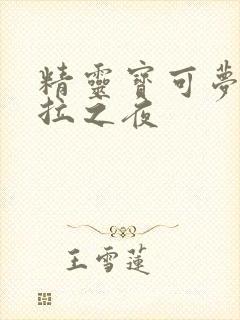 精靈寶可夢
拉之夜
王雪蓮